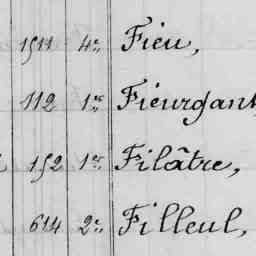 1511 4e. Fieu,
112 1re Fieurgant
152 1er Filâtre,
614 2e. Filleul,